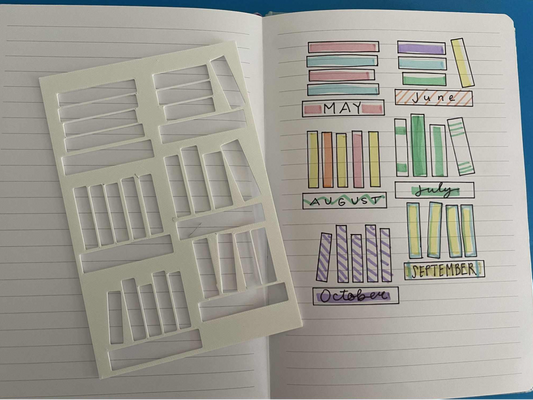 MAY
June
AUGUST
July
SEPTEMBER
October